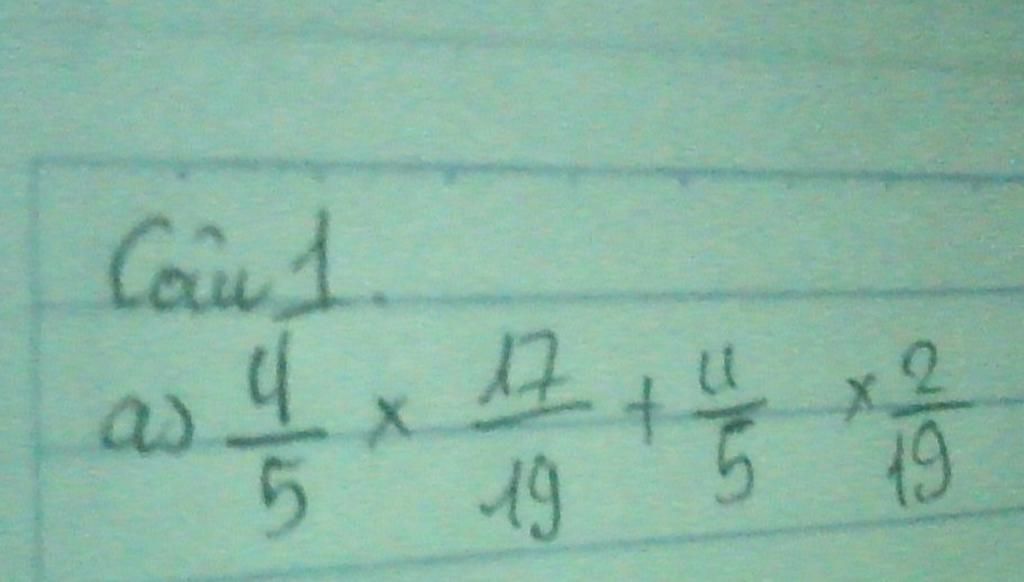 Câu 1.
a) 4/5 × 17/19 + 4/5 × 2/19